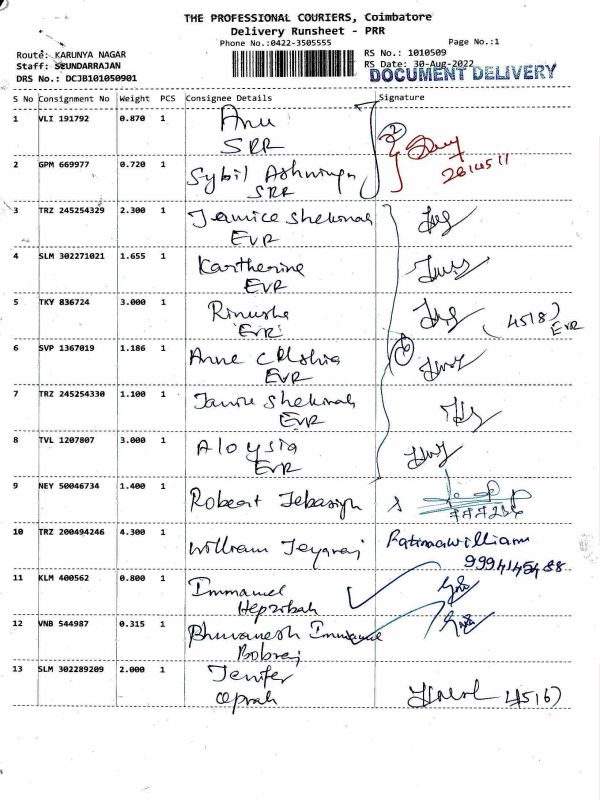 THE PROFESSIONAL COURIERS, Coimbatore
Delivery Runsheet - PRR
Phone No.:0422-3505555
Page No.:1
Route: KARUNYA NAGAR
RS No.: 1010509
Staff: SEUNDARRAJAN
RS Date: 30-Aug-2022
DRS No.: DCJB101050901
DOCUMENT DELIVERY
S No Consignment No Weight PCS Consignee Details Signature
1 VLI 191792 0.870 1 Anu
SRR
2 GPM 669977 0.720 1 Sybil
SRR
2
3 TRZ 245254329 2.300 1 Jemice Shekinah
EVR
4 SLM 302271021 1.655 1 Kartherine
EVR
5 TKY 836724 3.000 1 Rinusha
EVR
(4518)
EVR
6 SVP 1367019 1.186 1 Anne
EVR
6
7 TRZ 245254330 1.100 1 Shekinah
EVR
8 TVL 1207807 3.000 1 Aloysia
EVR
9 NEY 50046734 1.400 1 Robeart Jebasigh
10 TRZ 200494246 4.300 1 William Jeyaraj Fatimawilliam
11 KLM 400562 0.800 1 Immanuel
Hepzibah
12 VNB 544987 0.315 1 Bhuvanesh Immanuel
Bobraj
13 SLM 302289209 2.000 1 Jenifer
Oprah
4516)